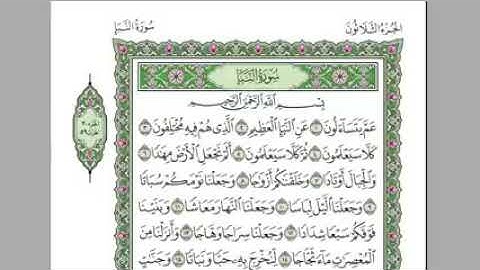 الجُزءُ الثَّلَاثُونَ
سُورَةُ النَّبَإِ
سُورَةُ النَّبَإِ
بِسْمِ اللَّهِ الرَّحْمَٰنِ الرَّحِيمِ
عَمَّ يَتَسَآءَلُونَ ١ عَنِ ٱلنَّبَإِ ٱلْعَظِيمِ ٢ ٱلَّذِى هُمْ فِيهِ مُخْتَلِفُونَ ٣
كَلَّا سَيَعْلَمُونَ ٤ ثُمَّ كَلَّا سَيَعْلَمُونَ ٥ أَلَمْ نَجْعَلِ ٱلْأَرْضَ مِهَٰدًا ٦
وَٱلْجِبَالَ أَوْتَادًا ٧ وَخَلَقْنَٰكُمْ أَزْوَٰجًا ٨ وَجَعَلْنَا نَوْمَكُمْ سُبَاتًا
٩ وَجَعَلْنَا ٱلَّيْلَ لِبَاسًا ١٠ وَجَعَلْنَا ٱلنَّهَارَ مَعَاشًا ١١ وَبَنَيْنَا
فَوْقَكُمْ سَبْعًا شِدَادًا ١٢ وَجَعَلْنَا سِرَاجًا وَهَّاجًا ١٣ وَأَنزَلْنَا مِنَ
ٱلْمُعْصِرَٰتِ مَآءً ثَجَّاجًا ١٤ لِّنُخْرِجَ بِهِۦ حَبًّا وَنَبَاتًا ١٥ وَجَنَّٰتٍ